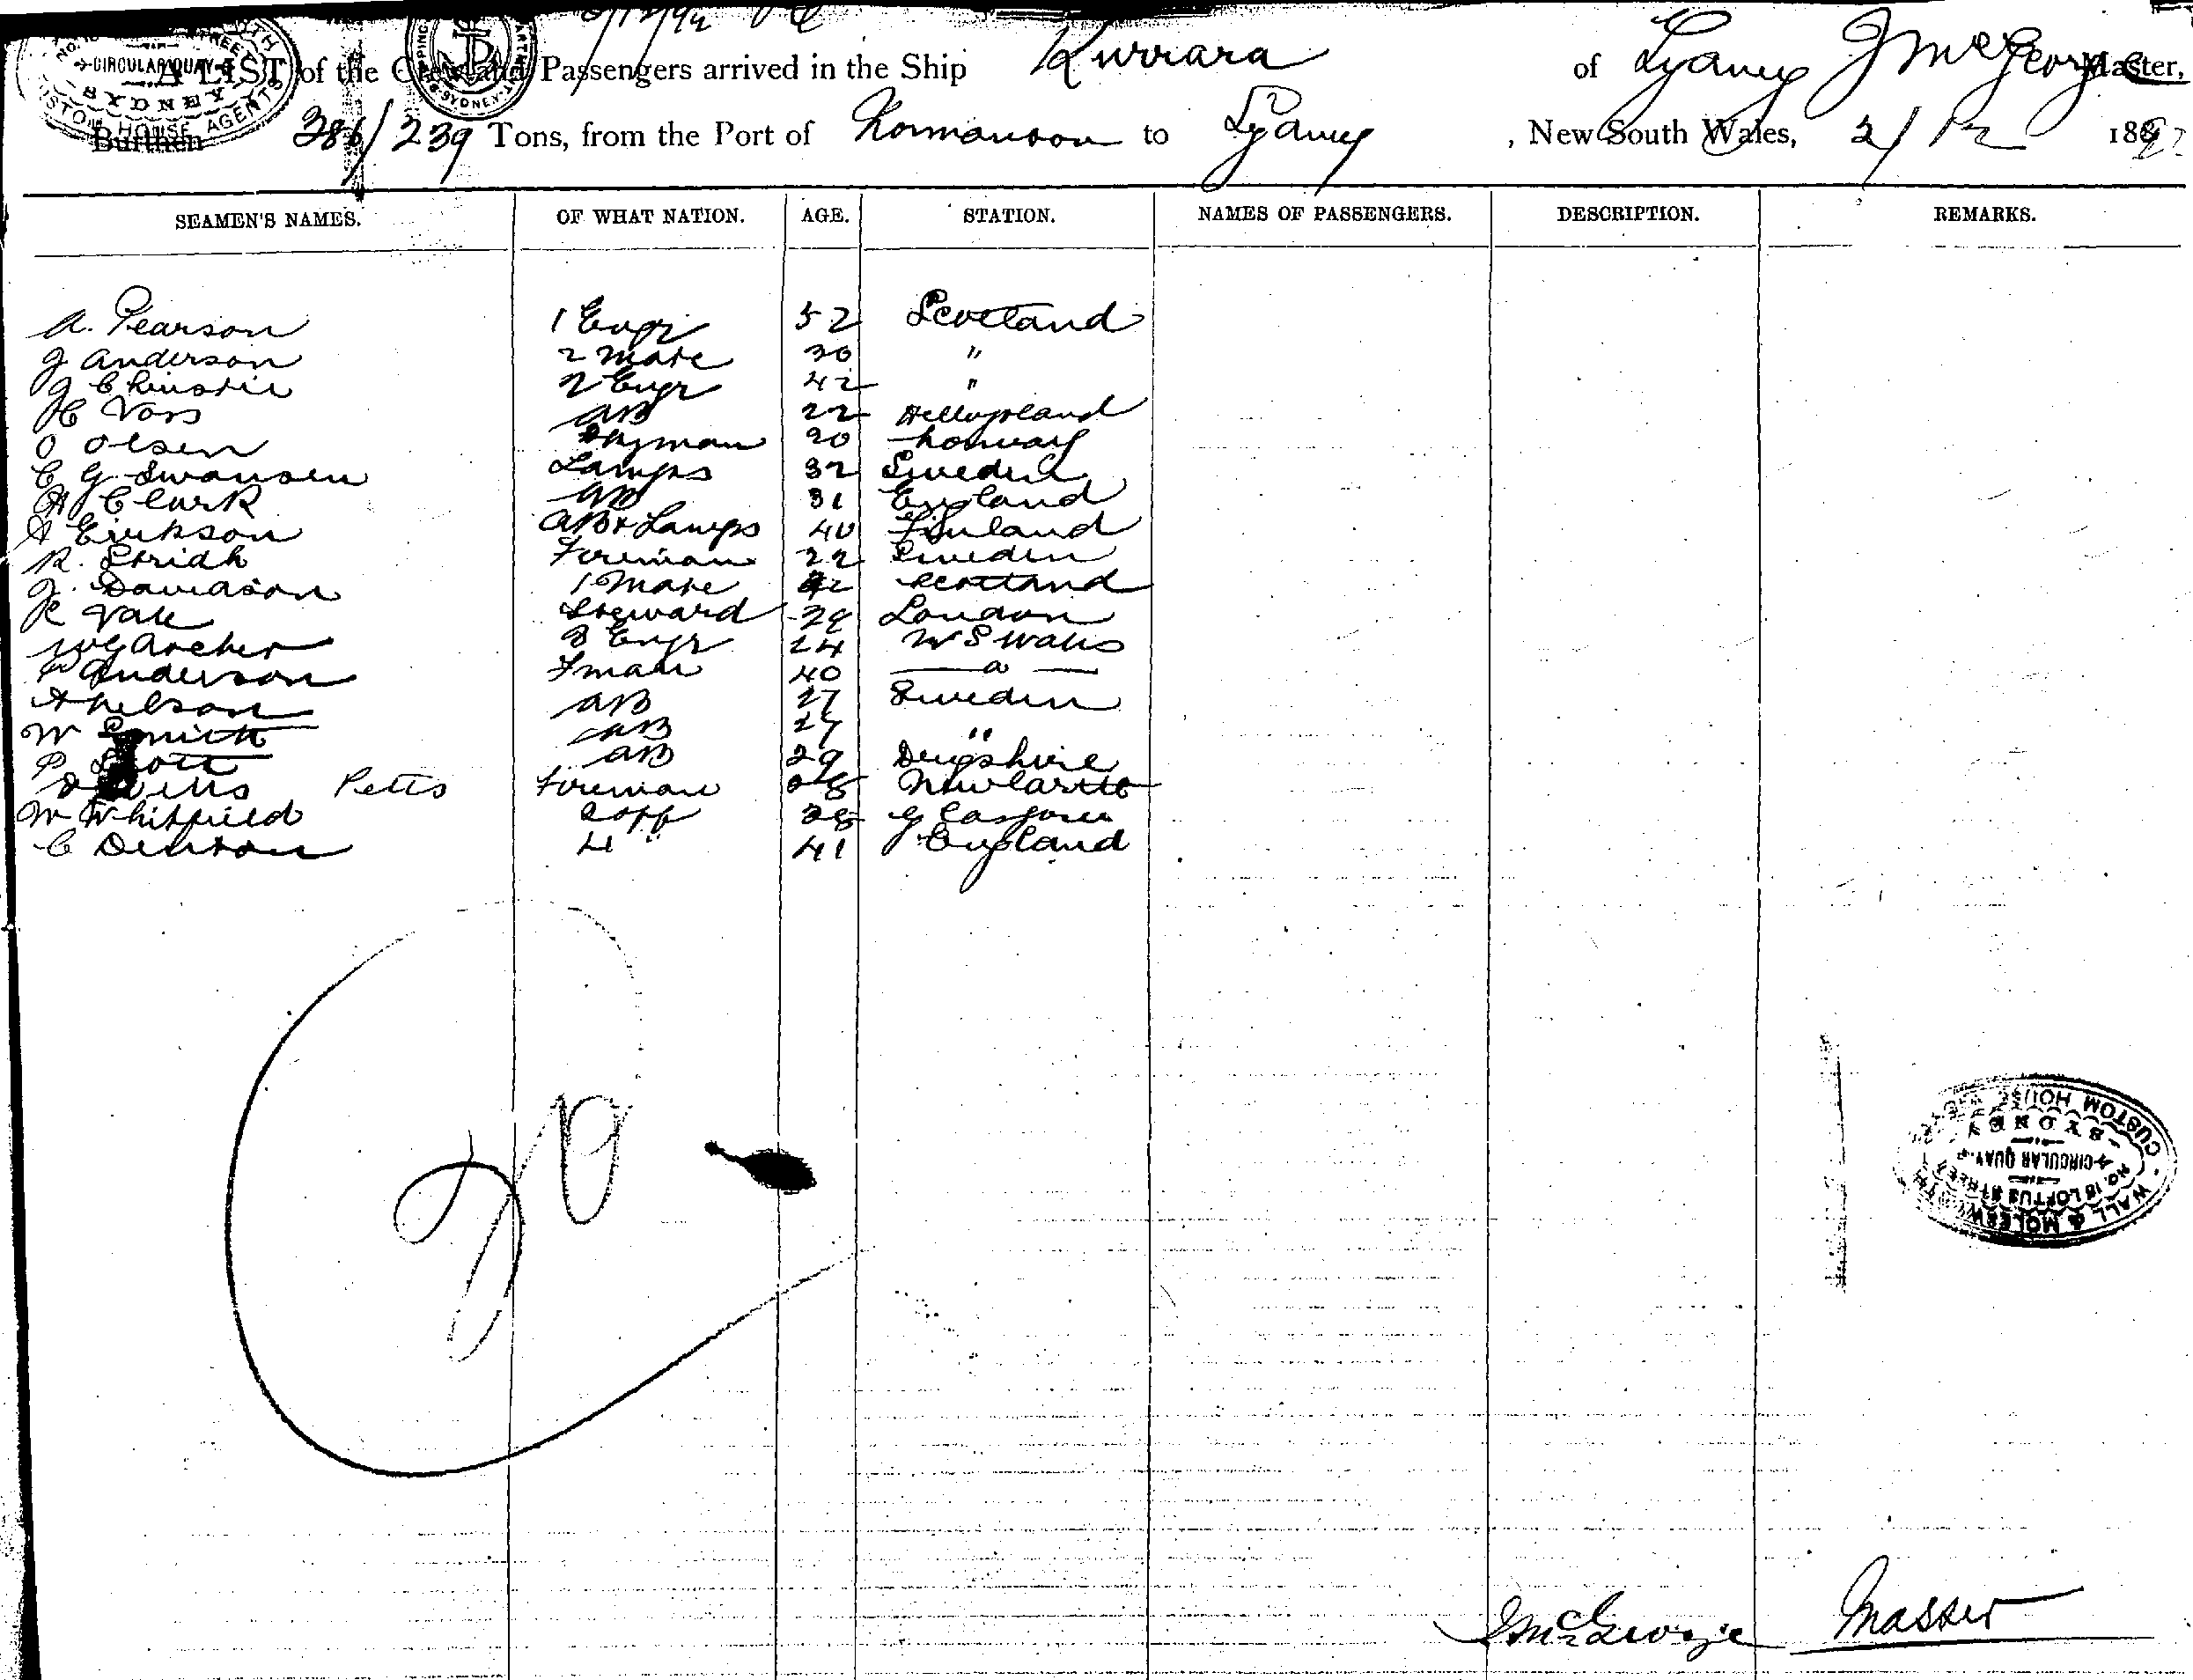 2/12/92
A LIST of the Crew and Passengers arrived in the Ship Kurrara of Sydney J McGeorge Master,
Burthen 386/239 Tons, from the Port of Normanton to Sydney, New South Wales, 2/12 1892
SEAMEN'S NAMES. OF WHAT NATION. AGE. STATION. NAMES OF PASSENGERS. DESCRIPTION. REMARKS.
A. Pearson 1 Engr 52 Scotland
J Anderson 2 Mate 30 "
J Christie 2 Engr 42 "
H Voss AB 22 Heligoland
O Olsen 20 Norway
C G Swansen Lamps 32 Sweden
H Clark AB 31 England
A Erikson AB & Lamps 40 Finland
R. Stridh Fireman 22 Sweden
J. Davidson 1 Mate 42 Scotland
R Vale Steward 29 London
W G Archer 3 Engr 24 N S Wales
Anderson Fman 40
A Nelson AB 27 Sweden
W Smith AB 27 "
P Scott AB 29
Petts Fireman 28 Newcastle
W Whitfield 28 Glasgow
C Denton 41 England
20
WALL & 
NO. 18 LOFTUS STREET
CIRCULAR QUAY
SYDNEY
CUSTOM HOUSE AGENTS
J McGeorge Master